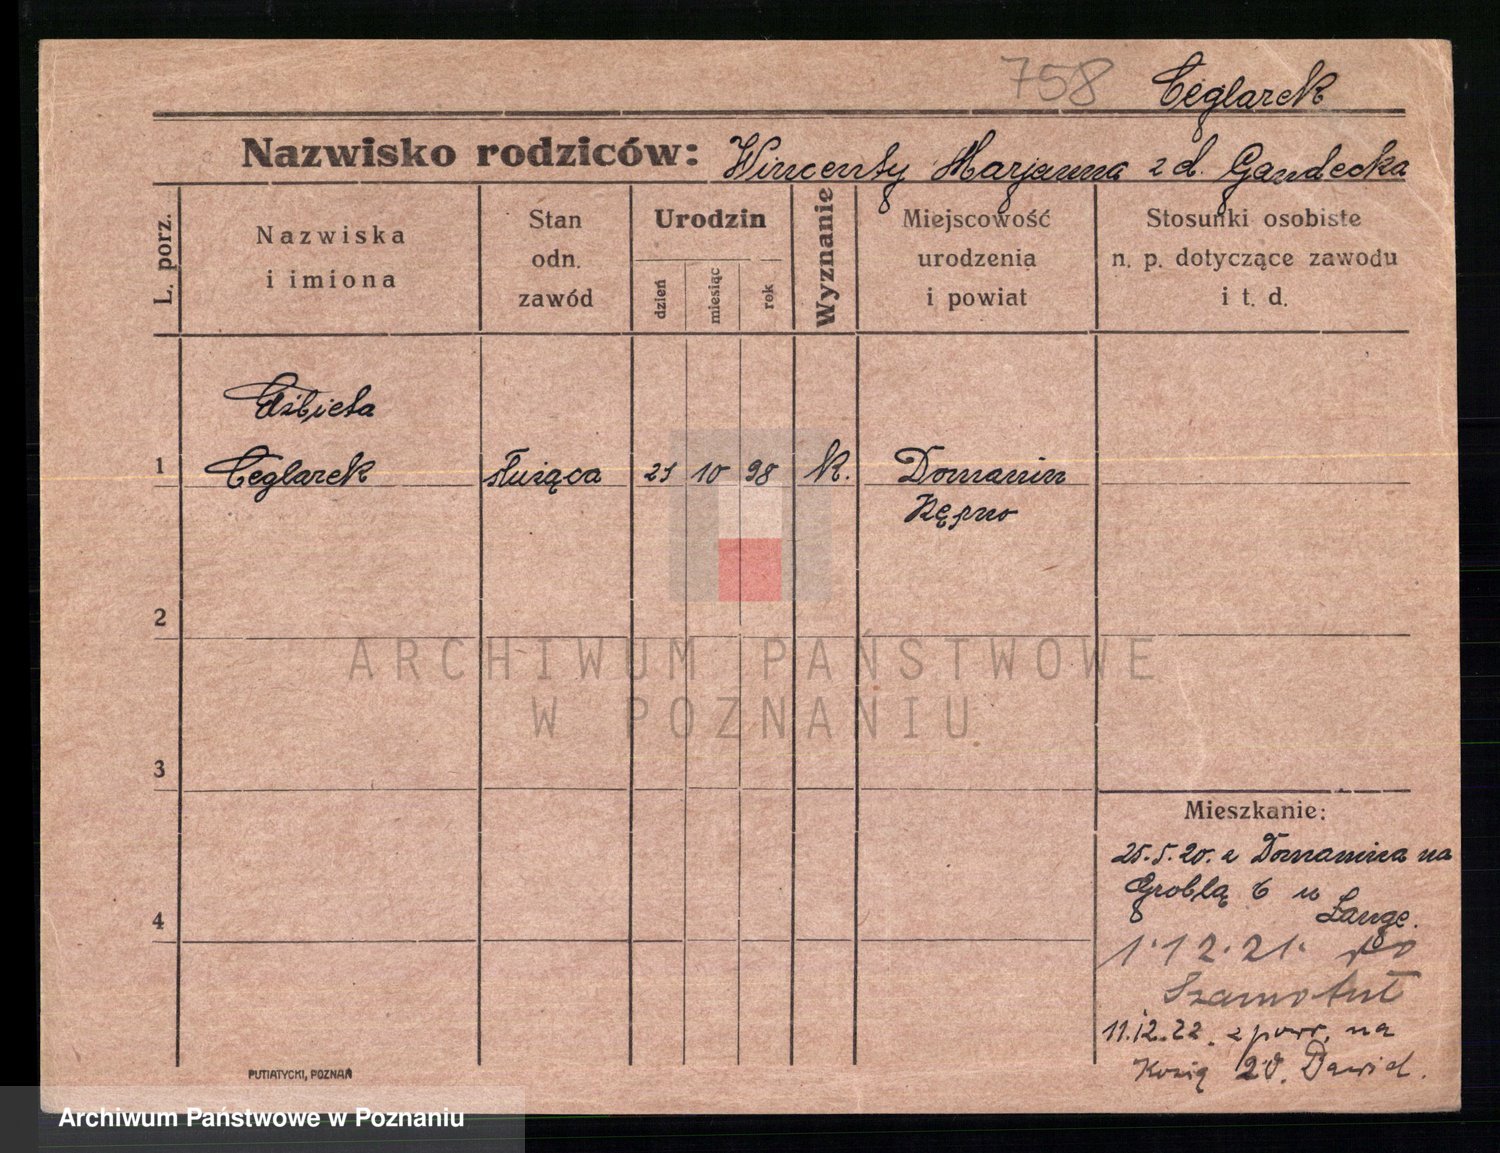 758 Ceglarek
Nazwisko rodziców: Wincenty Marjanna z d. Gandecka
L. porz.
Nazwiska
i imiona
Stan
odn.
zawód
Urodzin
dzień
miesiąc
rok
Wyznanie
Miejscowość
urodzenia
i powiat
Stosunki osobiste
n. p. dotyczące zawodu
i t. d.
Elżbieta
1 Ceglarek służąca 21 10 98 k. Domanin
Kępno
2
ARCHIWUM PAŃSTWOWE
W POZNANIU
3
Mieszkanie:
25.5.20. z Domanina na
Groblą 6 u
Lange.
4
1.12.21. do
Szamotuł
11.12.22. z powr. na
Kozią 20. Dawid.
PUTIATYCKI, POZNAŃ
Archiwum Państwowe w Poznaniu